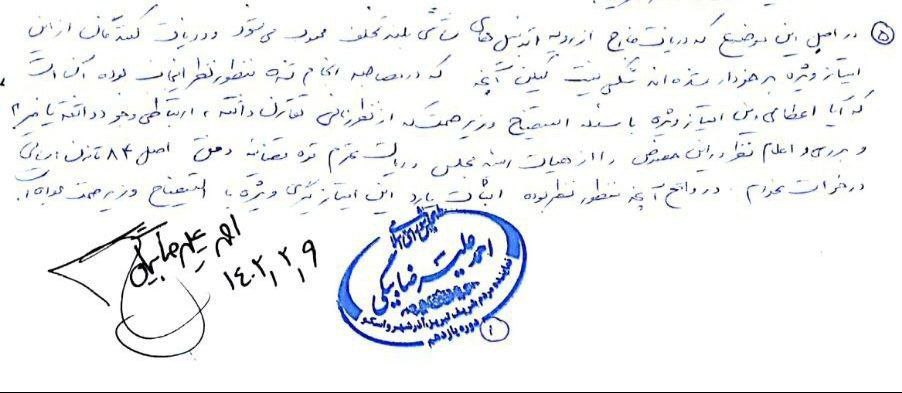 ۵ در اصل این موضوع که دریافت خارج از رویه اتومبیل های شاسی بلند تخلف محسوب می شود و دریافت کنندگان از این
امتیاز ویژه برخوردار شده اند شکی نیست لیکن آنچه که در مصاحبه انجام شده منظور نظر اینجانب بوده آن است
که آیا اعطای این امتیاز ویژه با مسئله استیضاح وزیر صمت که از نظر زمانی تقارن داشته، ارتباطی وجود داشته یا خیر؟
و بررسی و اعلام نظر در این خصوص را از هیات رئیسه مجلس و ریاست محترم قوه قضائیه وفق اصل ۸۴ قانون اساسی
درخواست نموده ام. در واقع آنچه منظور نظر بوده اثبات یا رد این امتیازگیری ویژه با استیضاح وزیر صمت بوده است.
احمد علیرضابیگی
۱۴۰۲,۲,۹
مجلس شورای اسلامی
احمد علیرضابیگی
نماینده مردم شریف تبریز، آذرشهر و اسکو
دوره یازدهم
۱